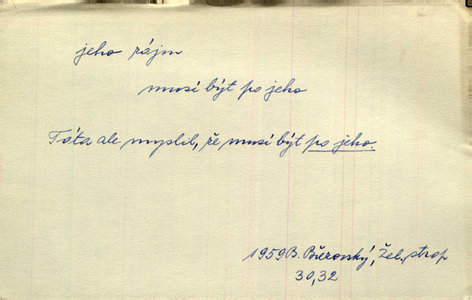 jeho zájm
musí být po jeho
Táta ale myslil, že musí být po jeho.
1959 B. Březovský, Žel. strop
30,32